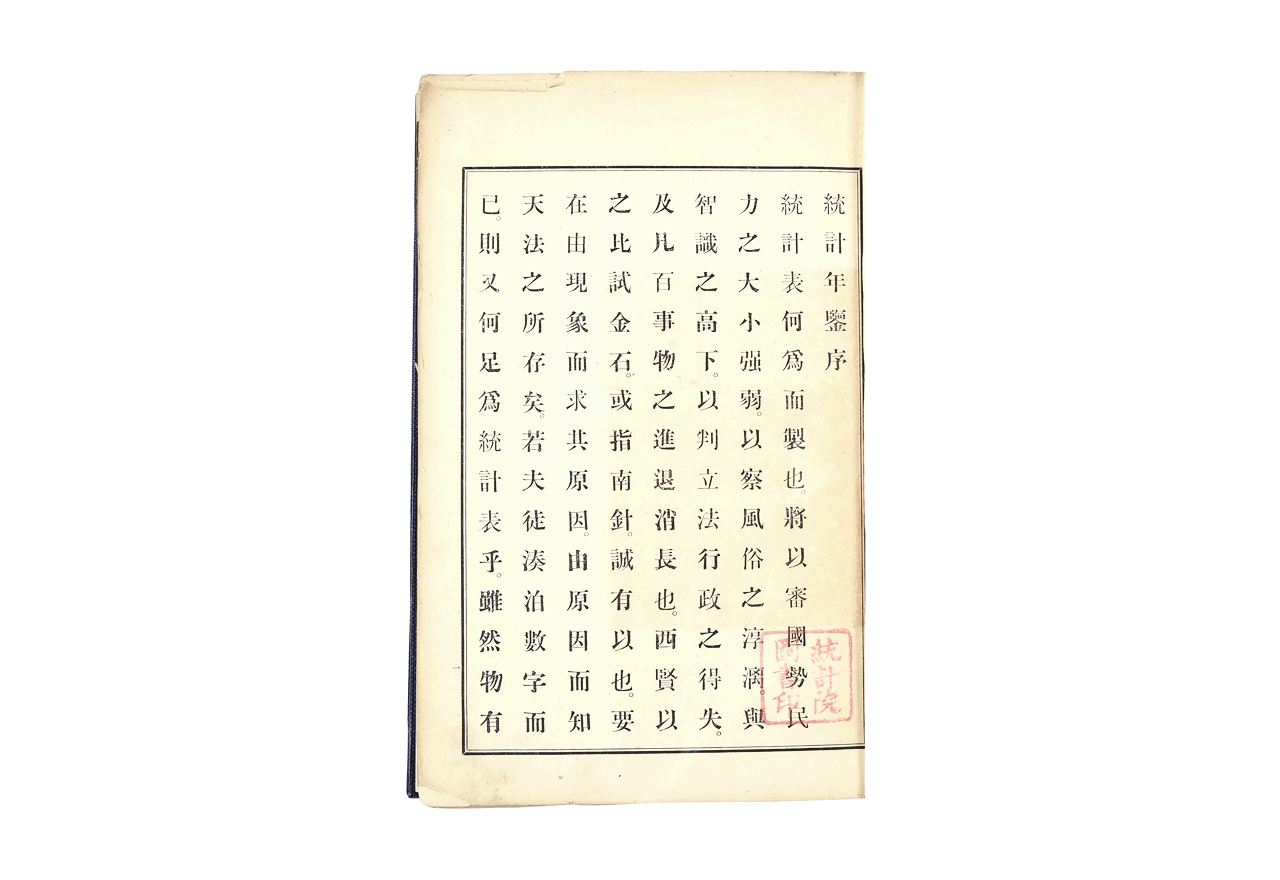 統計年鑒序
統計表何爲而製也。將以審國勢民
力之大小强弱。以察風俗之淳漓。與
智識之高下。以判立法行政之得失。
及凡百事物之進退消長也。西賢以
之比試金石。或指南針。誠有以也。要
在由現象而求其原因。由原因而知
天法之所存矣。若夫徒湊泊數字而
已。則又何足爲統計表乎。雖然物有
統計院
圖書印